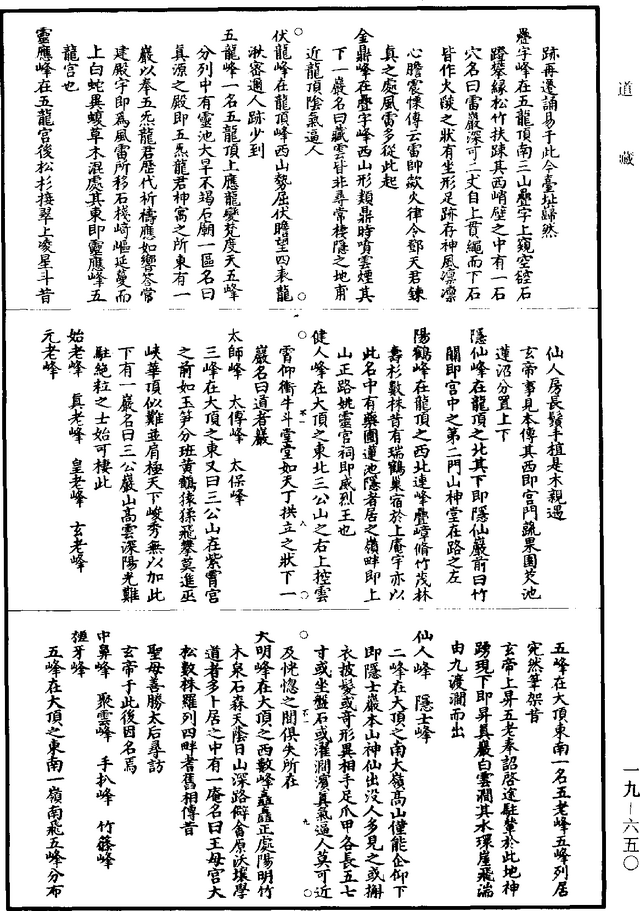 道藏
跡再遷誦易于此今臺址歸然
疊字峰在五龍頂南三山疊字上窺空磴石
蹬攀緣松竹扶踈其西峭壁之中有一石
穴名曰雷巖深可二丈自上貫繩而下石
皆作火燄之狀有坐形足跡存神風凛凛
心膽震慄傳云雷師歘火律令鄧天君鍊
真之處風雷多從此起
金鼎峰在疊字峰西山形類鼎時噴雲煙其
下一巖名曰藏雲皆非尋常棲隱之地甫
近龍頂陰氣逼人
伏龍峰在龍頂峰西山勢屈伏瞻望四表龍
湫密邇人跡少到
五龍峰一名五龍頂上應龍變梵度天五峰
分列中有靈池大旱不竭石廟一區名曰
真源之殿即五炁龍君神寓之所東有一
巖以奉五炁龍君歷代祈禱應如響荅常
建殿宇即為風雷所移石棧崎嶇延蔓而
上白蛇異蝮草木混處其東即靈應峰五
龍宮也
靈應峰在五龍宮後松杉接翠上凌星斗昔
仙人房長鬚手植是木親遇
玄帝事見本傳其西即宮門蔬果園芡池
蓮沼分置上下
隱仙峰在龍頂之北其下即隱仙巖前曰竹
關即宮中之第二門山神堂在路之左
陽鶴峰在龍頂之西北連峰疊嶂脩竹茂林
壽杉數株昔有瑞鶴巢宿於上庵宇亦以
此名中有藥圃蓮池隱者居之嶺畔即上
山正路姚靈官祠即威烈王也
健人峰在大頂之東北三公山之右上控雲
霄仰衝牛斗堂堂如天丁拱立之狀下一
巖名曰道者巖
太師峰 太傅峰 太保峰
三峰在大頂之東又曰三公山在紫霄宮
之前如玉笋分班黃鶴猿猱飛攀莫進巫
峽華頂似難並肩極天下峻秀無以加此
下有一巖名曰三公巖山高雲深陽光難
駐絶粒之士始可棲此
始老峰 真老峰 皇老峰 玄老峰
元老峰
五峰在大頂東南一名五老峰五峰列居
宛然筆架昔
玄帝上昇五老奉詔啓途駐輦於此地神
踴現下即昇真巖白雲澗其水環崖飛湍
由九渡澗而出
仙人峰 隱士峰
二峰在大頂之南大嶺高山僅能企仰下
即隱士巖本山神仙出没人多見之或搟
衣披髮或奇形異相手足爪甲各長五七
寸或坐盤石或濯澗濱真氣逼人莫可近
及恍惚之間俱失所在
大明峰在大頂之西數峰矗矗正處陽明竹
木泉石森天陰日山深路僻畬原沃壤學
道者多卜居之中有一庵名曰王母宮大
松數株羅列四畔耆舊相傳昔
聖母善勝太后尋訪
玄帝于此後因名焉
中鼻峰 聚雲峰 手扒峰 竹篠峰
㹠牙峰
五峰在大頂之東南一嶺南飛五峰分布
一九－六五〇